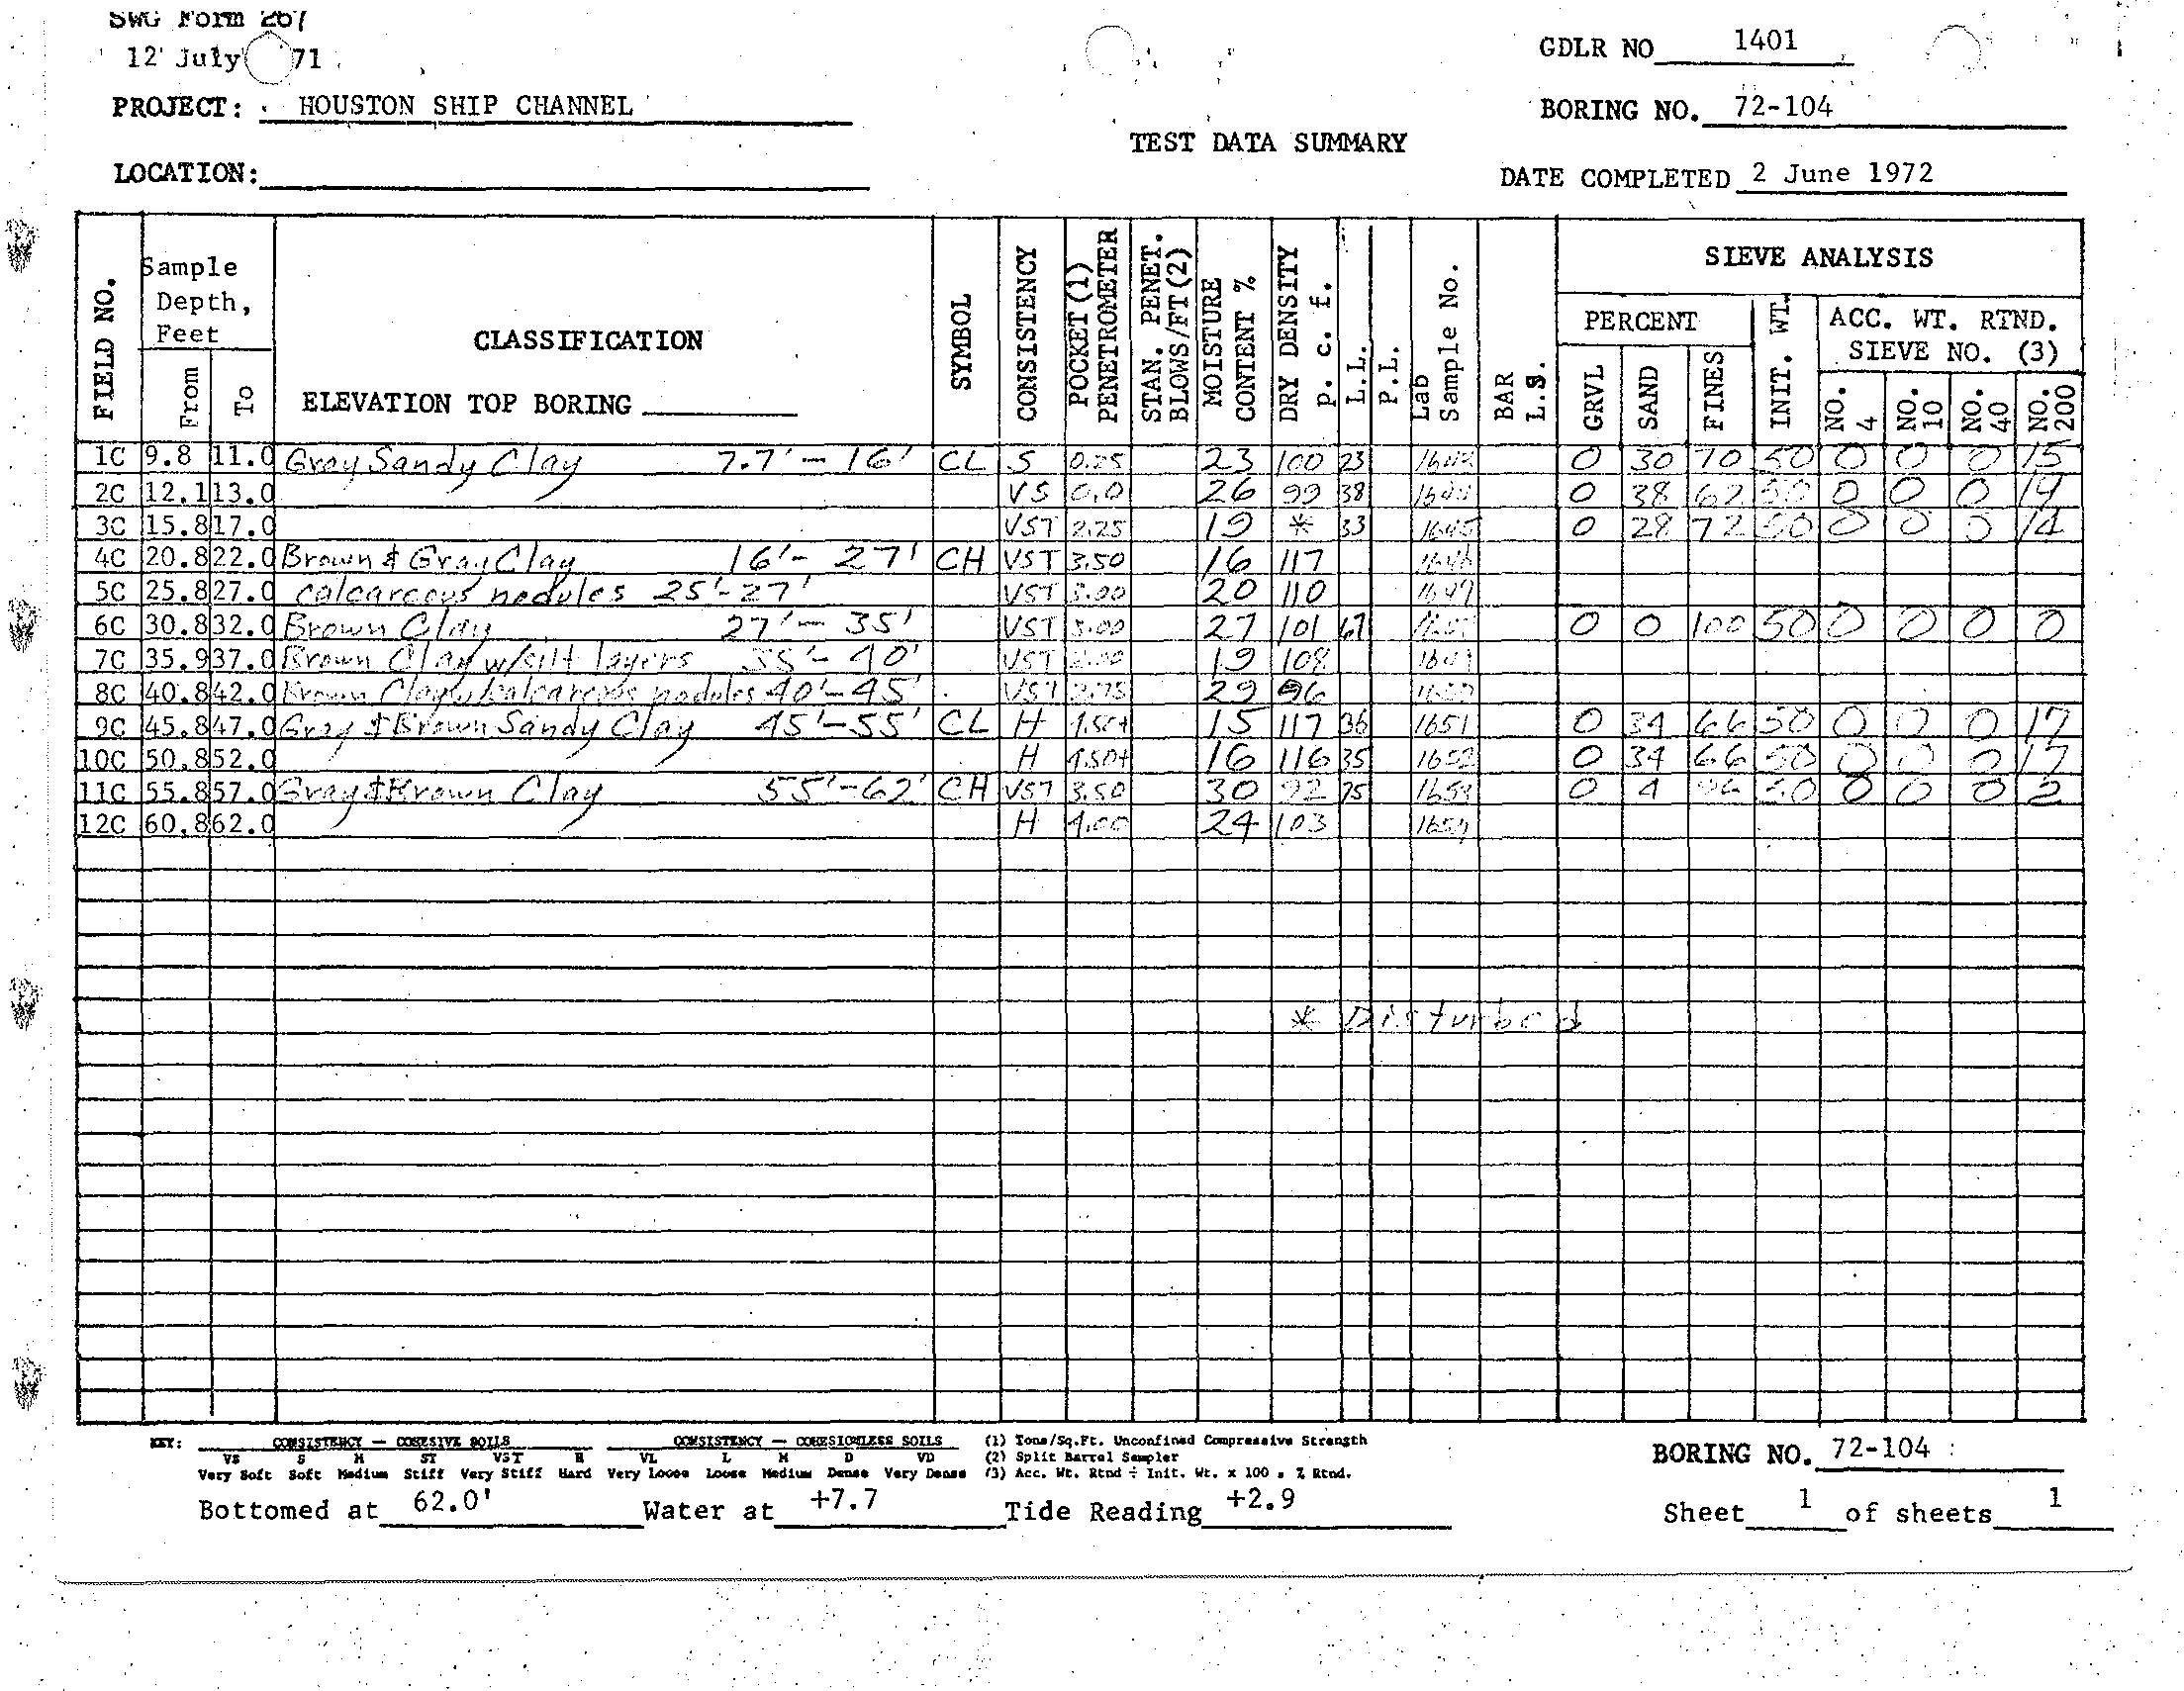 SWG Form 267
12 July 71
GDLR NO 1401
PROJECT: HOUSTON SHIP CHANNEL
BORING NO. 72-104
TEST DATA SUMMARY
LOCATION:
DATE COMPLETED 2 June 1972
FIELD NO.
Sample Depth, Feet
From
To
CLASSIFICATION
ELEVATION TOP BORING
SYMBOL
CONSISTENCY
POCKET (1) PENETROMETER
STAN. PENET. BLOWS/FT(2)
MOISTURE CONTENT %
DRY DENSITY p. c. f.
L.L.
P.L.
Lab Sample No.
BAR L.S.
SIEVE ANALYSIS
PERCENT
GRVL
SAND
FINES
INIT. WT.
ACC. WT. RTND. SIEVE NO. (3)
NO. 4
NO. 10
NO. 40
NO. 200
1C 9.8 11.0 Gray Sandy Clay 7.7' - 16' CL S 0.25 23 100 23 0 30 70 50 0 0 0 15
2C 12.1 13.0 VS 0.0 26 99 38 0 38 62 50 0 0 0 19
3C 15.8 17.0 VST 2.25 19 * 33 1645 0 28 72 50 0 0 0 14
4C 20.8 22.0 Brown & Gray Clay 16' - 27' CH VST 3.50 16 117 1646
5C 25.8 27.0 calcareous nodules 25' - 27' VST 3.00 20 110 1647
6C 30.8 32.0 Brown Clay 27' - 35' VST 3.00 27 101 67 0 0 100 50 0 0 0 0
7C 35.9 37.0 Brown Clay w/silt layers 35' - 40' VST 19 108 1649
8C 40.8 42.0 Brown Clay w/calcareous nodules 40' - 45' VST 2.75 29 96
9C 45.8 47.0 Gray & Brown Sandy Clay 45' - 55' CL H 4.50+ 15 117 36 1651 0 34 66 50 0 0 0 17
10C 50.8 52.0 H 4.50+ 16 116 35 1652 0 34 66 50 0 0 0 17
11C 55.8 57.0 Gray & Brown Clay 55' - 62' CH VST 3.50 30 92 75 0 4 96 50 0 0 0 2
12C 60.8 62.0 H 4.00 24 103
* Disturbed
KEY: CONSISTENCY — COHESIVE SOILS CONSISTENCY — COHESIONLESS SOILS (1) Tons/Sq.Ft. Unconfined Compressive Strength
VS S M ST VST H VL L M D VD (2) Split Barrel Sampler
Very Soft Soft Medium Stiff Very Stiff Hard Very Loose Loose Medium Dense Very Dense (3) Acc. Wt. Rtnd ÷ Init. Wt. x 100 = % Rtnd.
BORING NO. 72-104
Bottomed at 62.0' Water at +7.7 Tide Reading +2.9
Sheet 1 of sheets 1